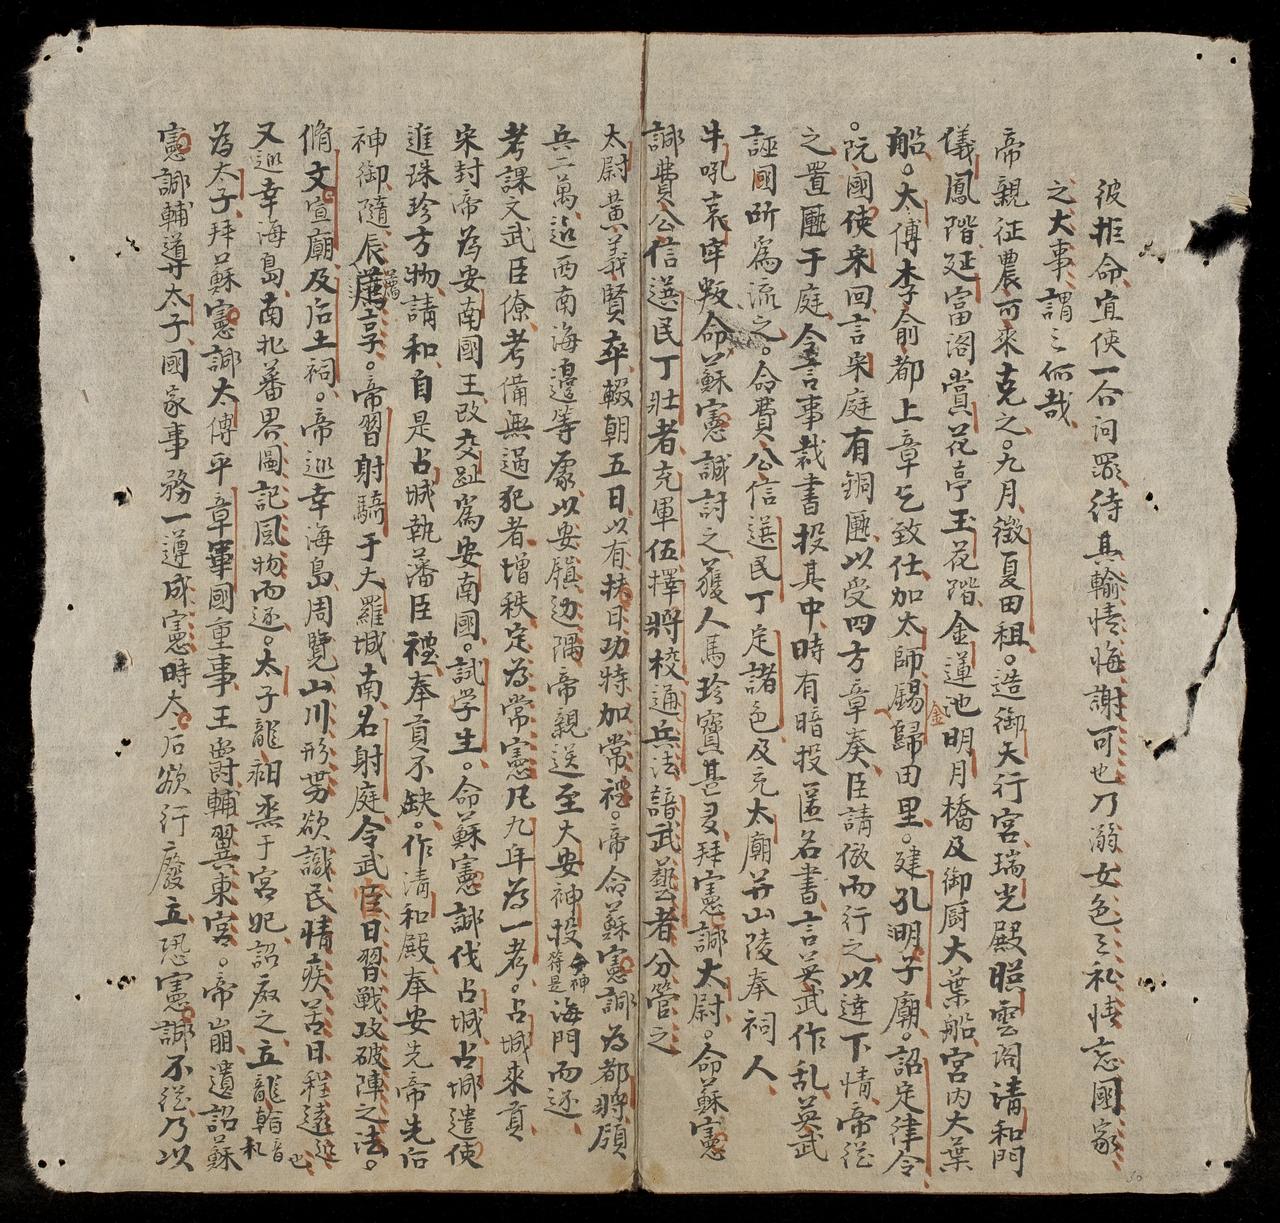 彼拒命宜使一介问罪待其輸情悔謝可也乃溺女色之私情忘國家
之大事謂之何哉
帝親征農可來克之。九月徵夏田租。造御天行宮瑞光殿暎雲阁清和門
儀鳳階延富阁賞花亭玉花階金蓮池明月橋及御厨大葉船宮内大葉
船。太傅李俞都上章乞致仕加太師賜金歸田里。建孔明子廟。詔定律令
。阮國使宋回言宋庭有銅匭以受四方章奏臣請倣而行之以達下情帝從
之置匭于庭令言事裁書投其中時有暗投匿名書言英武作乱英武
誣國所爲流之。命費公信選民丁定諸色及充太廟并山陵奉祠人
牛吼哀牢叛命蘇憲誠討之獲人馬珍寶甚多拜憲誠太尉。命蘇憲
誠費公信選民丁壯者充軍伍擇將校通兵法諳武藝者分管之
太尉黄義賢卒輟朝五日以有扶日功特加常禮。帝命蘇憲誠為都將領
兵二萬巡西南海邊等處以安鎮边隅帝親送至大安神投今神符是海門而还
考課文武臣僚考備無過犯者增秩定為常憲凡九年為一考。占城来貢
宋封帝為安南國王改交趾爲安南國。試学生。命蘇憲誠伐占城占城遣使
進珠珍方物請和自是占城執藩臣禮奉貢不缺。作清和殿奉安先帝先后
神御隨辰薦享。帝習射騎于大羅城南名射庭令武臣日習戰攻破陣之法。
脩文宣廟及后土祠。帝巡幸海島周覽山川形势欲識民情疾苦日程遠近也
又巡幸海島南北蕃界圖記風物而还。太子龍昶烝于宮妃詔廢之立龍翰音札
為太子拜蘇憲誠太傅平章軍國重事王爵輔翼東宮。帝崩遺詔蘇
憲誠輔導太子國家事務一遵成憲時太后欲行廢立恐憲誠不從乃以